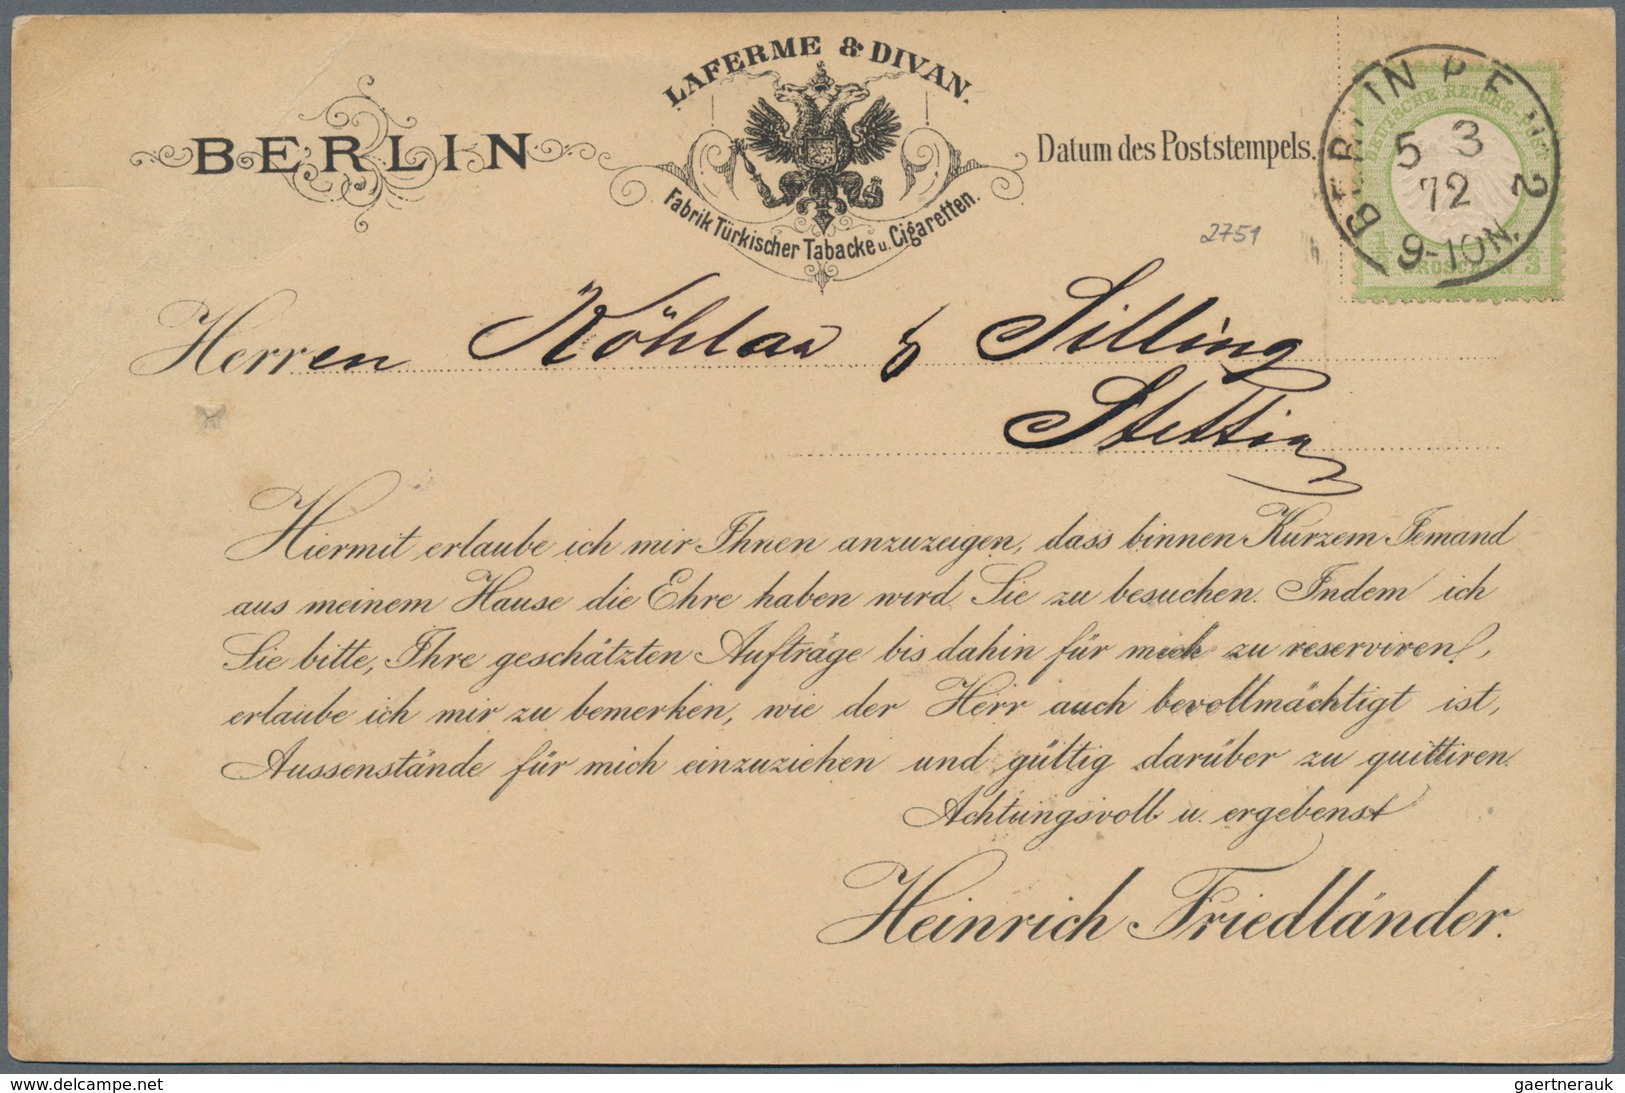 LAFERME & DIVAN.
BERLIN
Fabrik Türkischer Tabacke u. Cigaretten.
Datum des Poststempels.
DEUTSCHE REICHS-POST
BERLIN P.E. No 2
5 3
72
9-10N.
2751
Herren Köhlau & Silling
Stettin
Hiermit erlaube ich mir Ihnen anzuzeigen, dass binnen Kurzem Jemand
aus meinem Hause die Ehre haben wird, Sie zu besuchen. Indem ich
Sie bitte, Ihre geschätzten Aufträge bis dahin für mich zu reserviren,
erlaube ich mir zu bemerken, wie der Herr auch bevollmächtigt ist,
Aussenstände für mich einzuziehen und gültig darüber zu quittiren.
Achtungsvoll u. ergebenst
Heinrich Friedländer.
www.delcampe.net
gaertnerauk